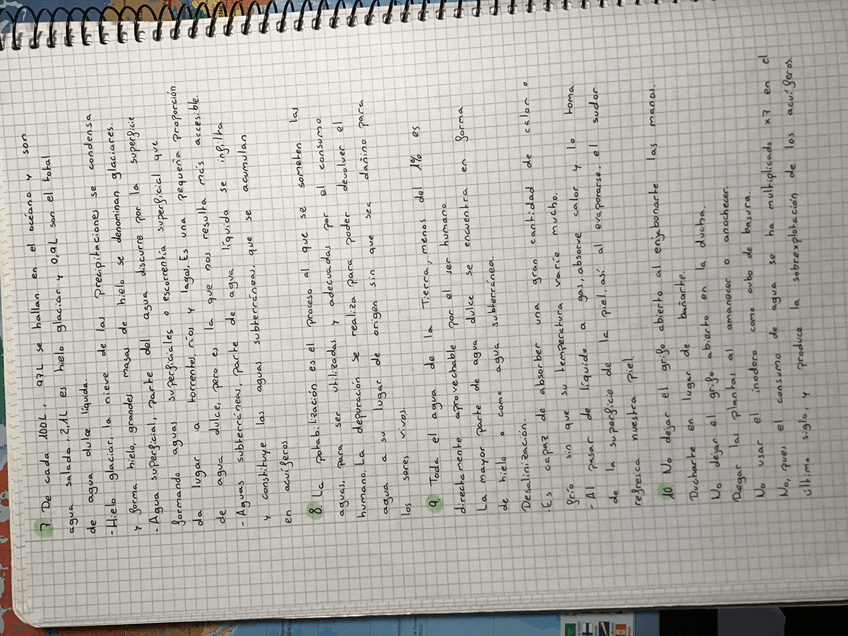 7. De cada 100L, 97L se hallan en el océano y son
agua salada 2,1L es hielo glaciar y 0,9L son el total
de agua dulce líquida.
- Hielo glaciar, la nieve de las precipitaciones se condensa
y forma hielo, grandes masas de hielo se denominan glaciares.
- Agua superficial, parte del agua discurre por la superficie
formando aguas superficiales o escorrentía superficial que
da lugar a torrentes, ríos y lagos. Es una pequeña proporción
de agua dulce, pero es la que nos resulta más accesible.
- Aguas subterráneas, parte de agua líquida se infiltra
y constituye las aguas subterráneas, que se acumulan
en acuíferos.
8. La potabilización es el proceso al que se someten las
aguas, para ser utilizadas y adecuadas por el consumo
humano. La depuración se realiza para poder devolver el
agua a su lugar de origen sin que sea dañino para
los seres vivos.
9. Toda el agua de la Tierra, menos del 1% es
directamente aprovechable por el ser humano.
La mayor parte de agua dulce se encuentra en forma
de hielo o como agua subterránea.
Desalinización.
· Es capaz de absorber una gran cantidad de calor o
frío sin que su temperatura varíe mucho.
- Al pasar de líquido a gas, absorve calor y lo toma
de la superficie de la piel, así al evaporarse el sudor
refresca nuestra piel.
10. No dejar el grifo abierto al enjabonarte las manos.
Ducharte en lugar de bañarte.
No dejar el grifo abierto en la ducha.
Regar las plantas al amanecer o anochecer.
No usar el inodoro como cubo de basura.
No, pues el consumo de agua se ha multiplicado x7 en el
último siglo, y produce la sobrexplotación de los acuíferos.